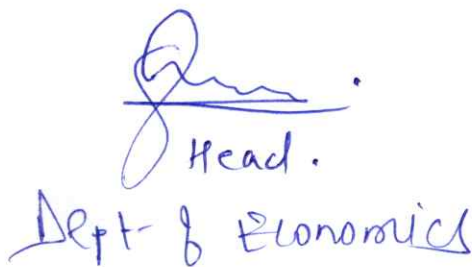 Head.
Dept of Economics